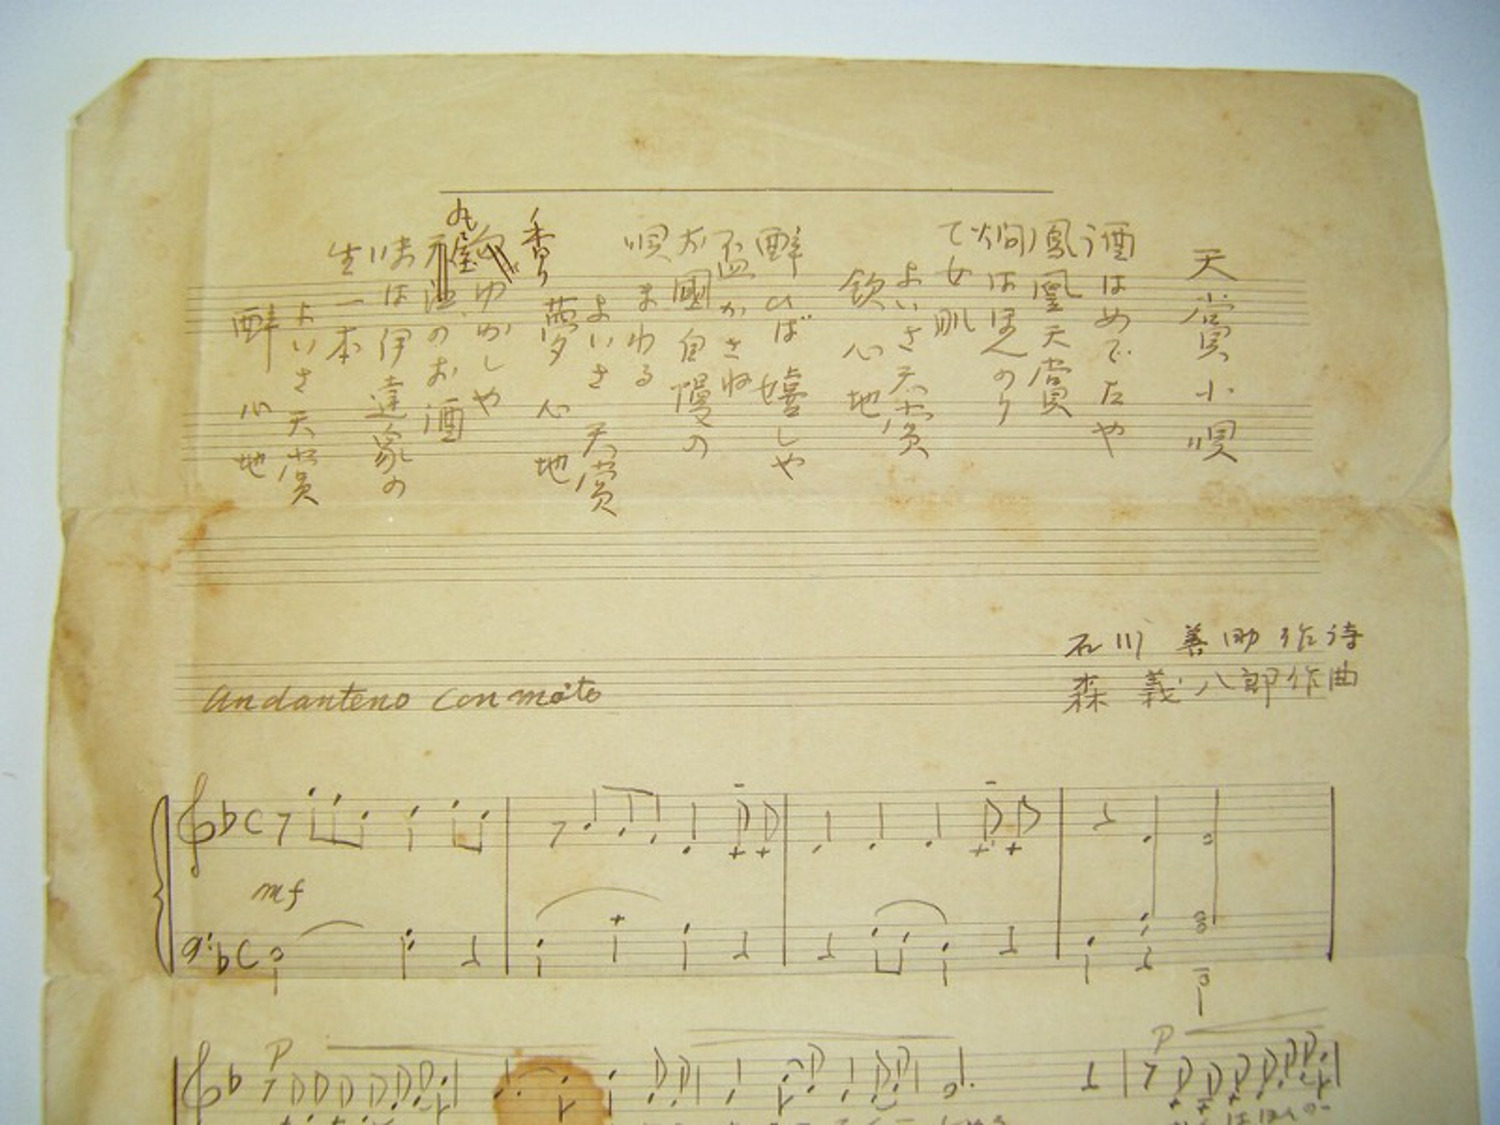 天賞小唄
酒はめでたや
鳳凰天賞
燗はほんのり
で女肌
よいさ天賞
飲心地
醉ひば嬉しや
盃かさね
お國自慢の
唄まわる
よいさ天賞
夢心地
香り
ゆかしや
丸屋
のお酒
味は伊達家の
生一本
よいさ天賞
醉心地
石川善助作詩
森義八郎作曲
Andanteno con moto
mf
p
p